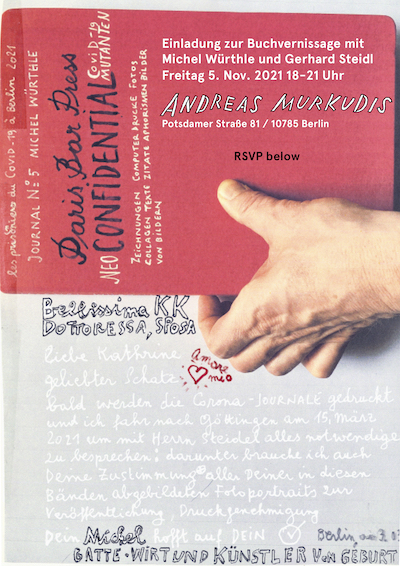 Einladung zur Buchvernissage mit
Michel Würthle und Gerhard Steidl
Freitag 5. Nov. 2021 18–21 Uhr
ANDREAS MURKUDIS
Potsdamer Straße 81 / 10785 Berlin
RSVP below
les prisoniers du COVID-19 à Berlin 2021
JOURNAL No 5 MICHEL WÜRTHLE
Paris Bar Press
NEO CONFIDENTIAL
COVID-19
MUTANTEN
ZEICHNUNGEN COMPUTER DRUCKE FOTOS
COLLAGEN TEXTE ZITATE APHORISMEN BILDER
VON BILDERN
Bellissima KK
DOTTORESSA, SPOSA
amore
meo
liebe Kathrine
geliebter Schatz
bald werden die Corona-JOURNALE gedruckt
und ich fahr nach Göttingen am 15. März
2021 um mit Herrn Steidel alles notwendige
zu besprechen! darunter brauche ich auch
Deine Zustimmung alles Deiner in diesen
Bänden abgebildeten Fotoportraits zur
Veröffentlichung, Druckgenehmigung
Dein Michel hofft auf DEIN
Berlin, am
GATTE-WIRT UND KÜNSTLER VON GEBURT